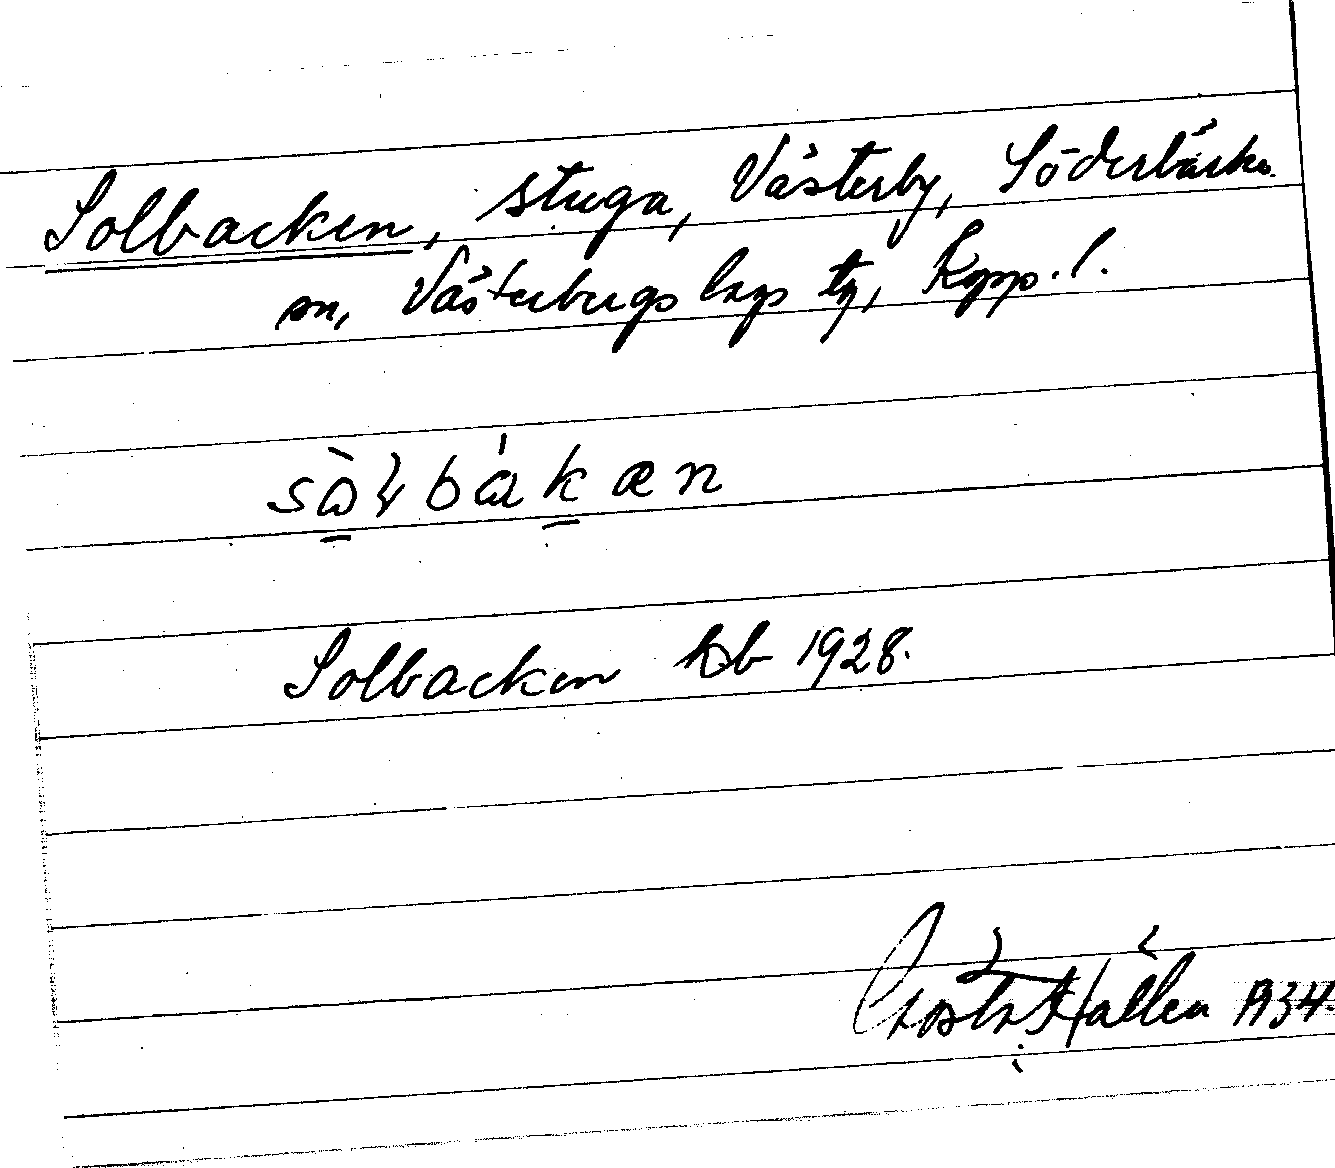 Solbacken, stuga, Västerby, Söderbärke
sn, Västerbergslags tg, Kopp. l.
sòɫbákæn
Solbacken kb 1928.
Gösta Hallén 1934.